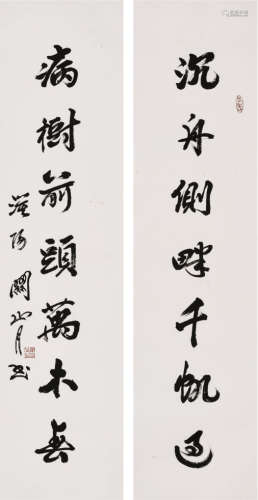 沉舟側畔千帆過
病樹前頭萬木春
漠陽關山月